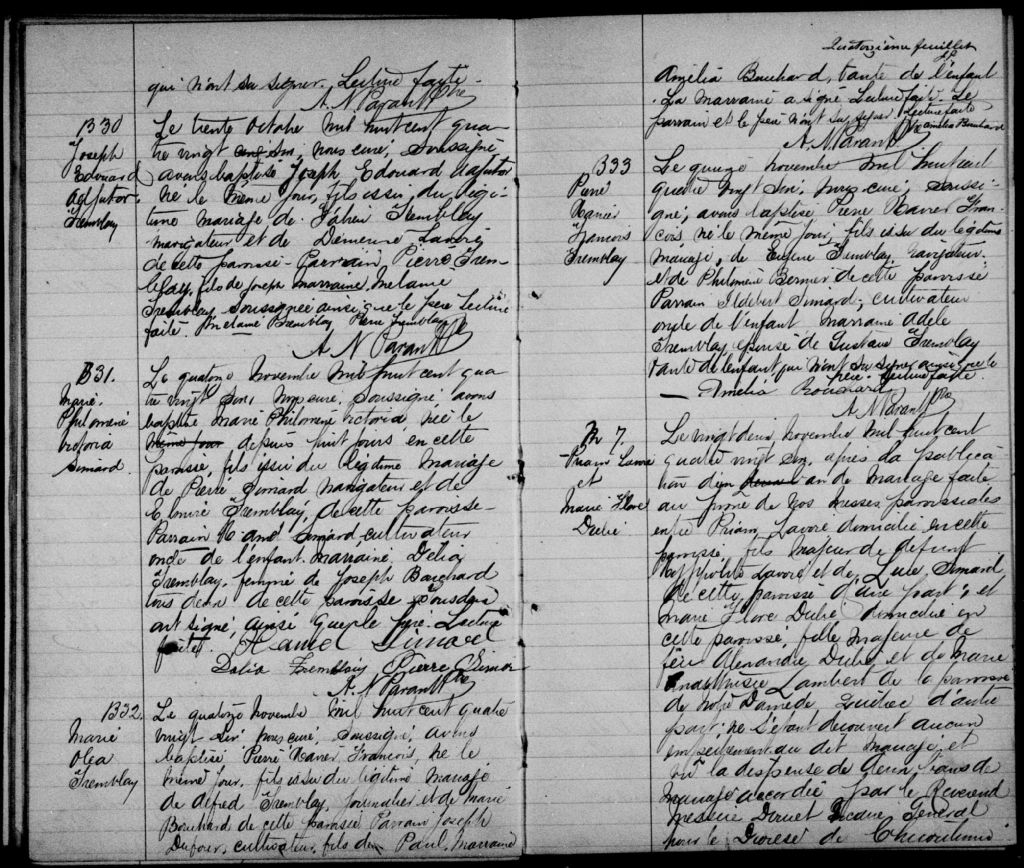 qui n'ont su signer. Lecture faite.
A. N. Parant Ptre
B30
Joseph
Edouard
Adjutor
Tremblay
Le trente Octobre mil huit cent qua
tre vingt nous curé, soussigné
avons baptisé Joseph Edouard Adjutor
né le même jour, fils issu du légi
time mariage de Tremblay
navigateur et de Lavoie
de cette paroisse - Parrain, Pierre Trem
blay, fils de Joseph marraine, Mélanie
Tremblay soussignée ainsi que le père Lecture
faite. Mélanie Tremblay Pierre Tremblay
A. N. Parant Ptre
B31.
Marie
Philomène
Victoria
Simard.
Le quatorze Novembre mil huit cent qua
tre vingt six, nous curé, soussigné avons
baptisé Marie Philomène Victoria, née le
même jour depuis huit jours en cette
paroisse, fils issu du légitime mariage
de Pierre Simard navigateur et de
Tremblay, de cette paroisse -
Parrain Simard, cultivateur
oncle de l'enfant. Marraine, Délia
Tremblay, femme de Joseph Bouchard
tous deux de cette paroisse
ont signé, ainsi que le père. Lecture
faite.
Simard
Délia Tremblay Pierre Simard
A. N. Parant Ptre
B32.
Marie
Olea
Tremblay
Le quatorze Novembre mil huit cent quatre
vingt six nous curé, soussigné, avons
baptisé Pierre Xavier François, né le
même jour, fils issu du légitime mariage
de Alfred Tremblay, journalier et de Marie
Bouchard de cette paroisse Parrain Joseph
Dufour, cultivateur, fils de Paul, Marraine
Quatorzième feuillet
Amélia Bouchard, tante de l'enfant
La marraine a signé Lecture faite. Le
parrain et le père n'ont su signer. Lecture faite
Amélia Bouchard
A. N. Parant Ptre
B33
Pierre
Xavier
François
Tremblay
Le quinze novembre mil huit cent
quatre vingt six, nous curé, soussi
gné, avons baptisé Pierre Xavier Fran
çois, né le même jour, fils issu du légitime
mariage, de Eugène Tremblay, navigateur
et de Philomène Bernier de cette paroisse
Parrain Ildebert Simard, cultivateur
oncle de l'enfant Marraine Adèle
Tremblay, épouse de Gustave Tremblay
tante de l'enfant qui n'ont su signer ainsi que le
père. Lecture faite
Amélia Bouchard
A. N. Parant Ptre
M 7.
Priam Lavoie
et
Marie Flore
Dubé
Le vingt deux novembre mil huit cent
quatre vingt six, après la publica
tion d'un ban de mariage faite
au prône de nos messes paroissiales
entre Priam Lavoie domicilié en cette
paroisse, fils majeur de défunt
Hyppolite Lavoie et de Luce Simard
de cette paroisse d'une part; et
Marie Flore Dubé domiciliée en
cette paroisse, fille majeure de
feu Alexandre Dubé, et de Marie
Lambert de la paroisse
de Notre Dame de Québec d'autre
part; ne s'étant découvert aucun
empêchement au dit mariage, et
vu la dispense de deux bans de
mariage accordée par le Révérend
Messire Vicaire Général
pour le Diocèse de Chicoutimi